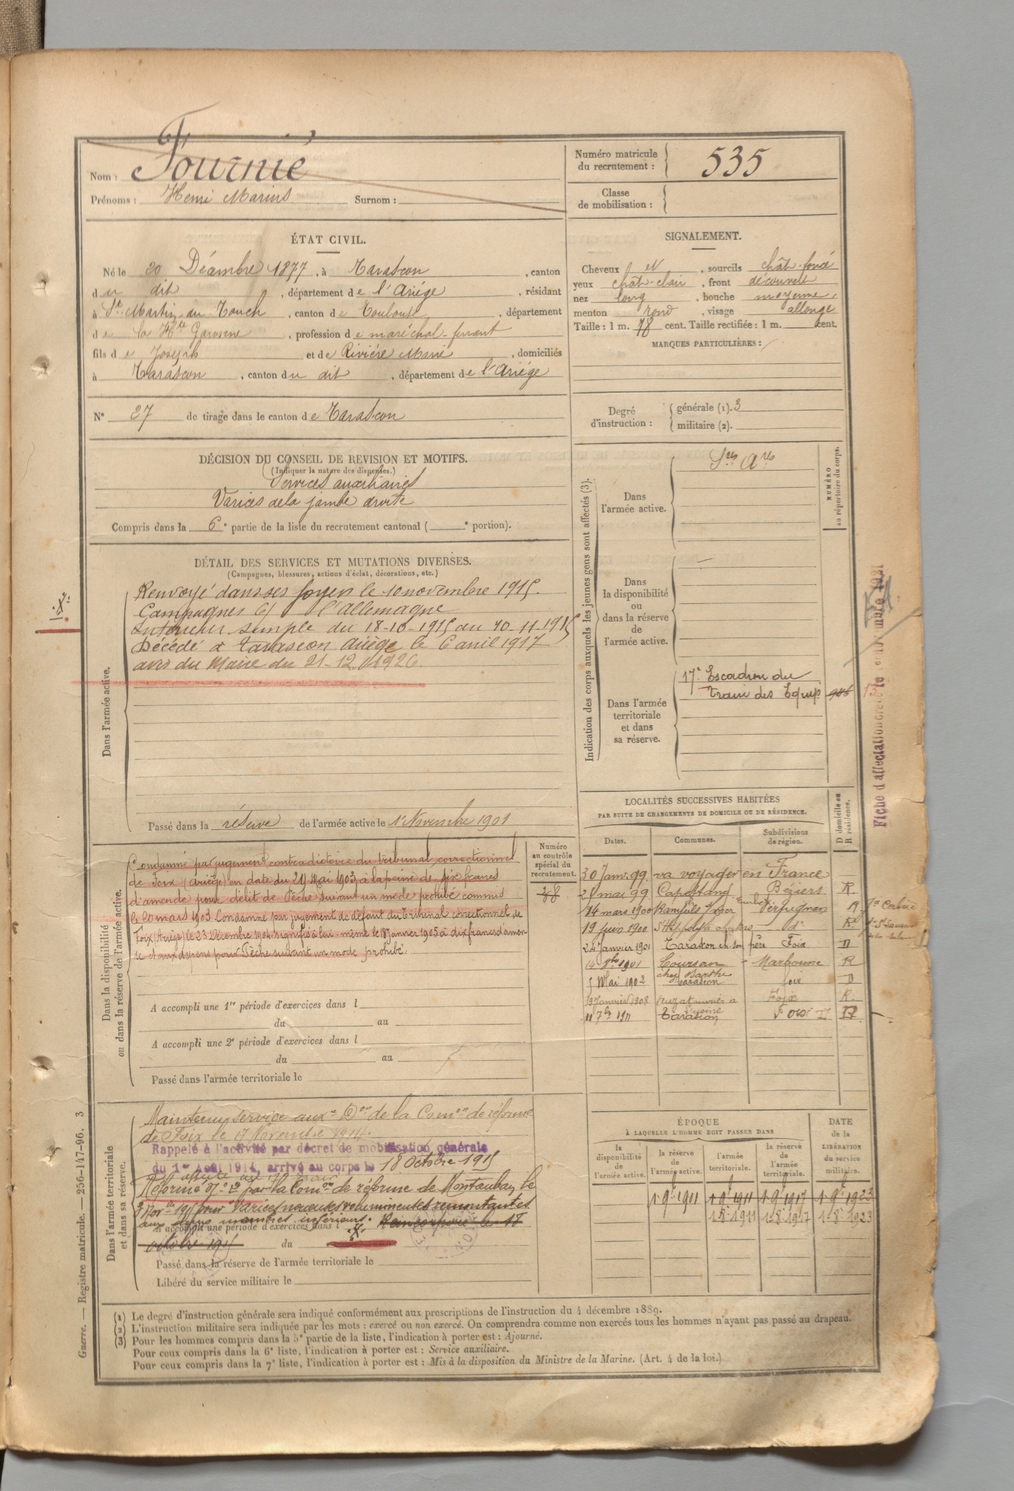 Nom : Fournié
Prénoms : Henri Marius Surnom :
Numéro matricule
du recrutement : 535
Classe
de mobilisation :
ÉTAT CIVIL.
Né le 20 Décembre 1877, à Tarascon, canton
du dit, département de l'Ariège, résidant
à St Martin du Touch, canton de Toulouse, département
de la Hte Garonne, profession de maréchal-ferrant
fils de Joseph et de Rivière Marie, domiciliés
à Tarascon, canton du dit, département de l'Ariège
N° 27 de tirage dans le canton de Tarascon
SIGNALEMENT.
Cheveux N, sourcils chât-foncé
yeux chât-clair, front découvert
nez long, bouche moyenne
menton rond, visage allongé
Taille : 1 m. 78 cent. Taille rectifiée : 1 m. cent.
MARQUES PARTICULIÈRES :
Degré
d'instruction :
générale (1). 3
militaire (2).
DÉCISION DU CONSEIL DE REVISION ET MOTIFS.
(Indiquer la nature des dispenses.)
Services auxiliaires
Varices de la jambe droite
Compris dans la 6e partie de la liste du recrutement cantonal ( e portion).
DÉTAIL DES SERVICES ET MUTATIONS DIVERSES.
(Campagnes, blessures, actions d'éclat, décorations, etc.)
Dans l'armée active.
Renvoyé dans ses foyers le 10 novembre 1915.
Campagnes C/ l'Allemagne
Intérieur simple du 18-10-1915 au 10-11-1915
Décédé à Tarascon Ariège le 6 avril 1917
avis du Maire du 21-12-1926.
Passé dans la réserve de l'armée active le 1er Novembre 1901
Indication des corps auxquels les jeunes gens sont affectés (3).
NUMÉRO
au répertoire du corps.
Dans
l'armée active.
Sces Ares
Dans
la disponibilité
ou
dans la réserve
de
l'armée active.
Dans l'armée
territoriale
et dans
sa réserve.
17e Escadron du
Train des Equip
Fiche d'affectation
Dans la disponibilité
ou dans la réserve de l'armée active.
Condamné par jugement contradictoire du tribunal correctionnel
de Foix (Ariège) en date du 29 Mai 1903, à la peine de six francs
d'amende pour délit de Pêche suivant un mode prohibé commis
le 20 mars 1903. Condamné par jugement de défaut du Tribunal correctionnel de
Foix, Ariège, le 23 Décembre 1904 signifié à lui-même le 18 Janvier 1905 à dix francs d'amen-
de et aux dépens pour Pêche suivant un mode prohibé.
A accompli une 1re période d'exercices dans l
du au
A accompli une 2e période d'exercices dans l
du au
Passé dans l'armée territoriale le
Numéro
au contrôle
spécial du
recrutement.
LOCALITÉS SUCCESSIVES HABITÉES
PAR SUITE DE CHANGEMENTS DE DOMICILE OU DE RÉSIDENCE.
Dates. Communes. Subdivisions
de région.
D domicile ou
R résidence.
30 janv. 99 va voyager en France
2 mai 99 Capestang Béziers R.
14 mars 1900 Perpignan R
19 juin 1900 St Hippolyte R
24 Janvier 1901 Tarascon Foix D
1901 Coursan Narbonne R
5 Mai 1902 Tarascon Foix D
Janvier 1908 Foix R.
11 7bre 1911 Tarascon Foix D
Dans l'armée territoriale
et dans sa réserve.
Maintenu service auxre Don de la Comon de réforme
de Foix le 17 Novembre 1914.
Rappelé à l'activité par décret de mobilisation générale
du 1er Août 1914, arrivé au corps le 18 Octobre 1915
Réformé N° 2 par la Comon de réforme de Montauban le
Nov. 1915 pour Varices noueuses volumineuses remontantes
aux deux membres inférieurs.
A accompli une période d'exercices dans l
du
Passé dans la réserve de l'armée territoriale le
Libéré du service militaire le
ÉPOQUE
À LAQUELLE L'HOMME DOIT PASSER DANS
DATE
de la
LIBÉRATION
du service
militaire.
la
disponibilité
de
l'armée active.
la
réserve de
l'armée active.
l'armée
territoriale.
la réserve
de
l'armée
territoriale.
1-9-1911 1-9-1911 1-9-1917 1-9-1923
1-8-1911 1-8-1917 1-8-1923
(1) Le degré d'instruction générale sera indiqué conformément aux prescriptions de l'instruction du 4 décembre 1889.
(2) L'instruction militaire sera indiquée par les mots : exercé ou non exercé. On comprendra comme non exercés tous les hommes n'ayant pas passé au drapeau.
(3) Pour les hommes compris dans la 5e partie de la liste, l'indication à porter est : Ajourné.
Pour ceux compris dans la 6e liste, l'indication à porter est : Service auxiliaire.
Pour ceux compris dans la 7e liste, l'indication à porter est : Mis à la disposition du Ministre de la Marine. (Art. 4 de la loi.)
Guerre. — Registre matricule. — 256-147-96. 3